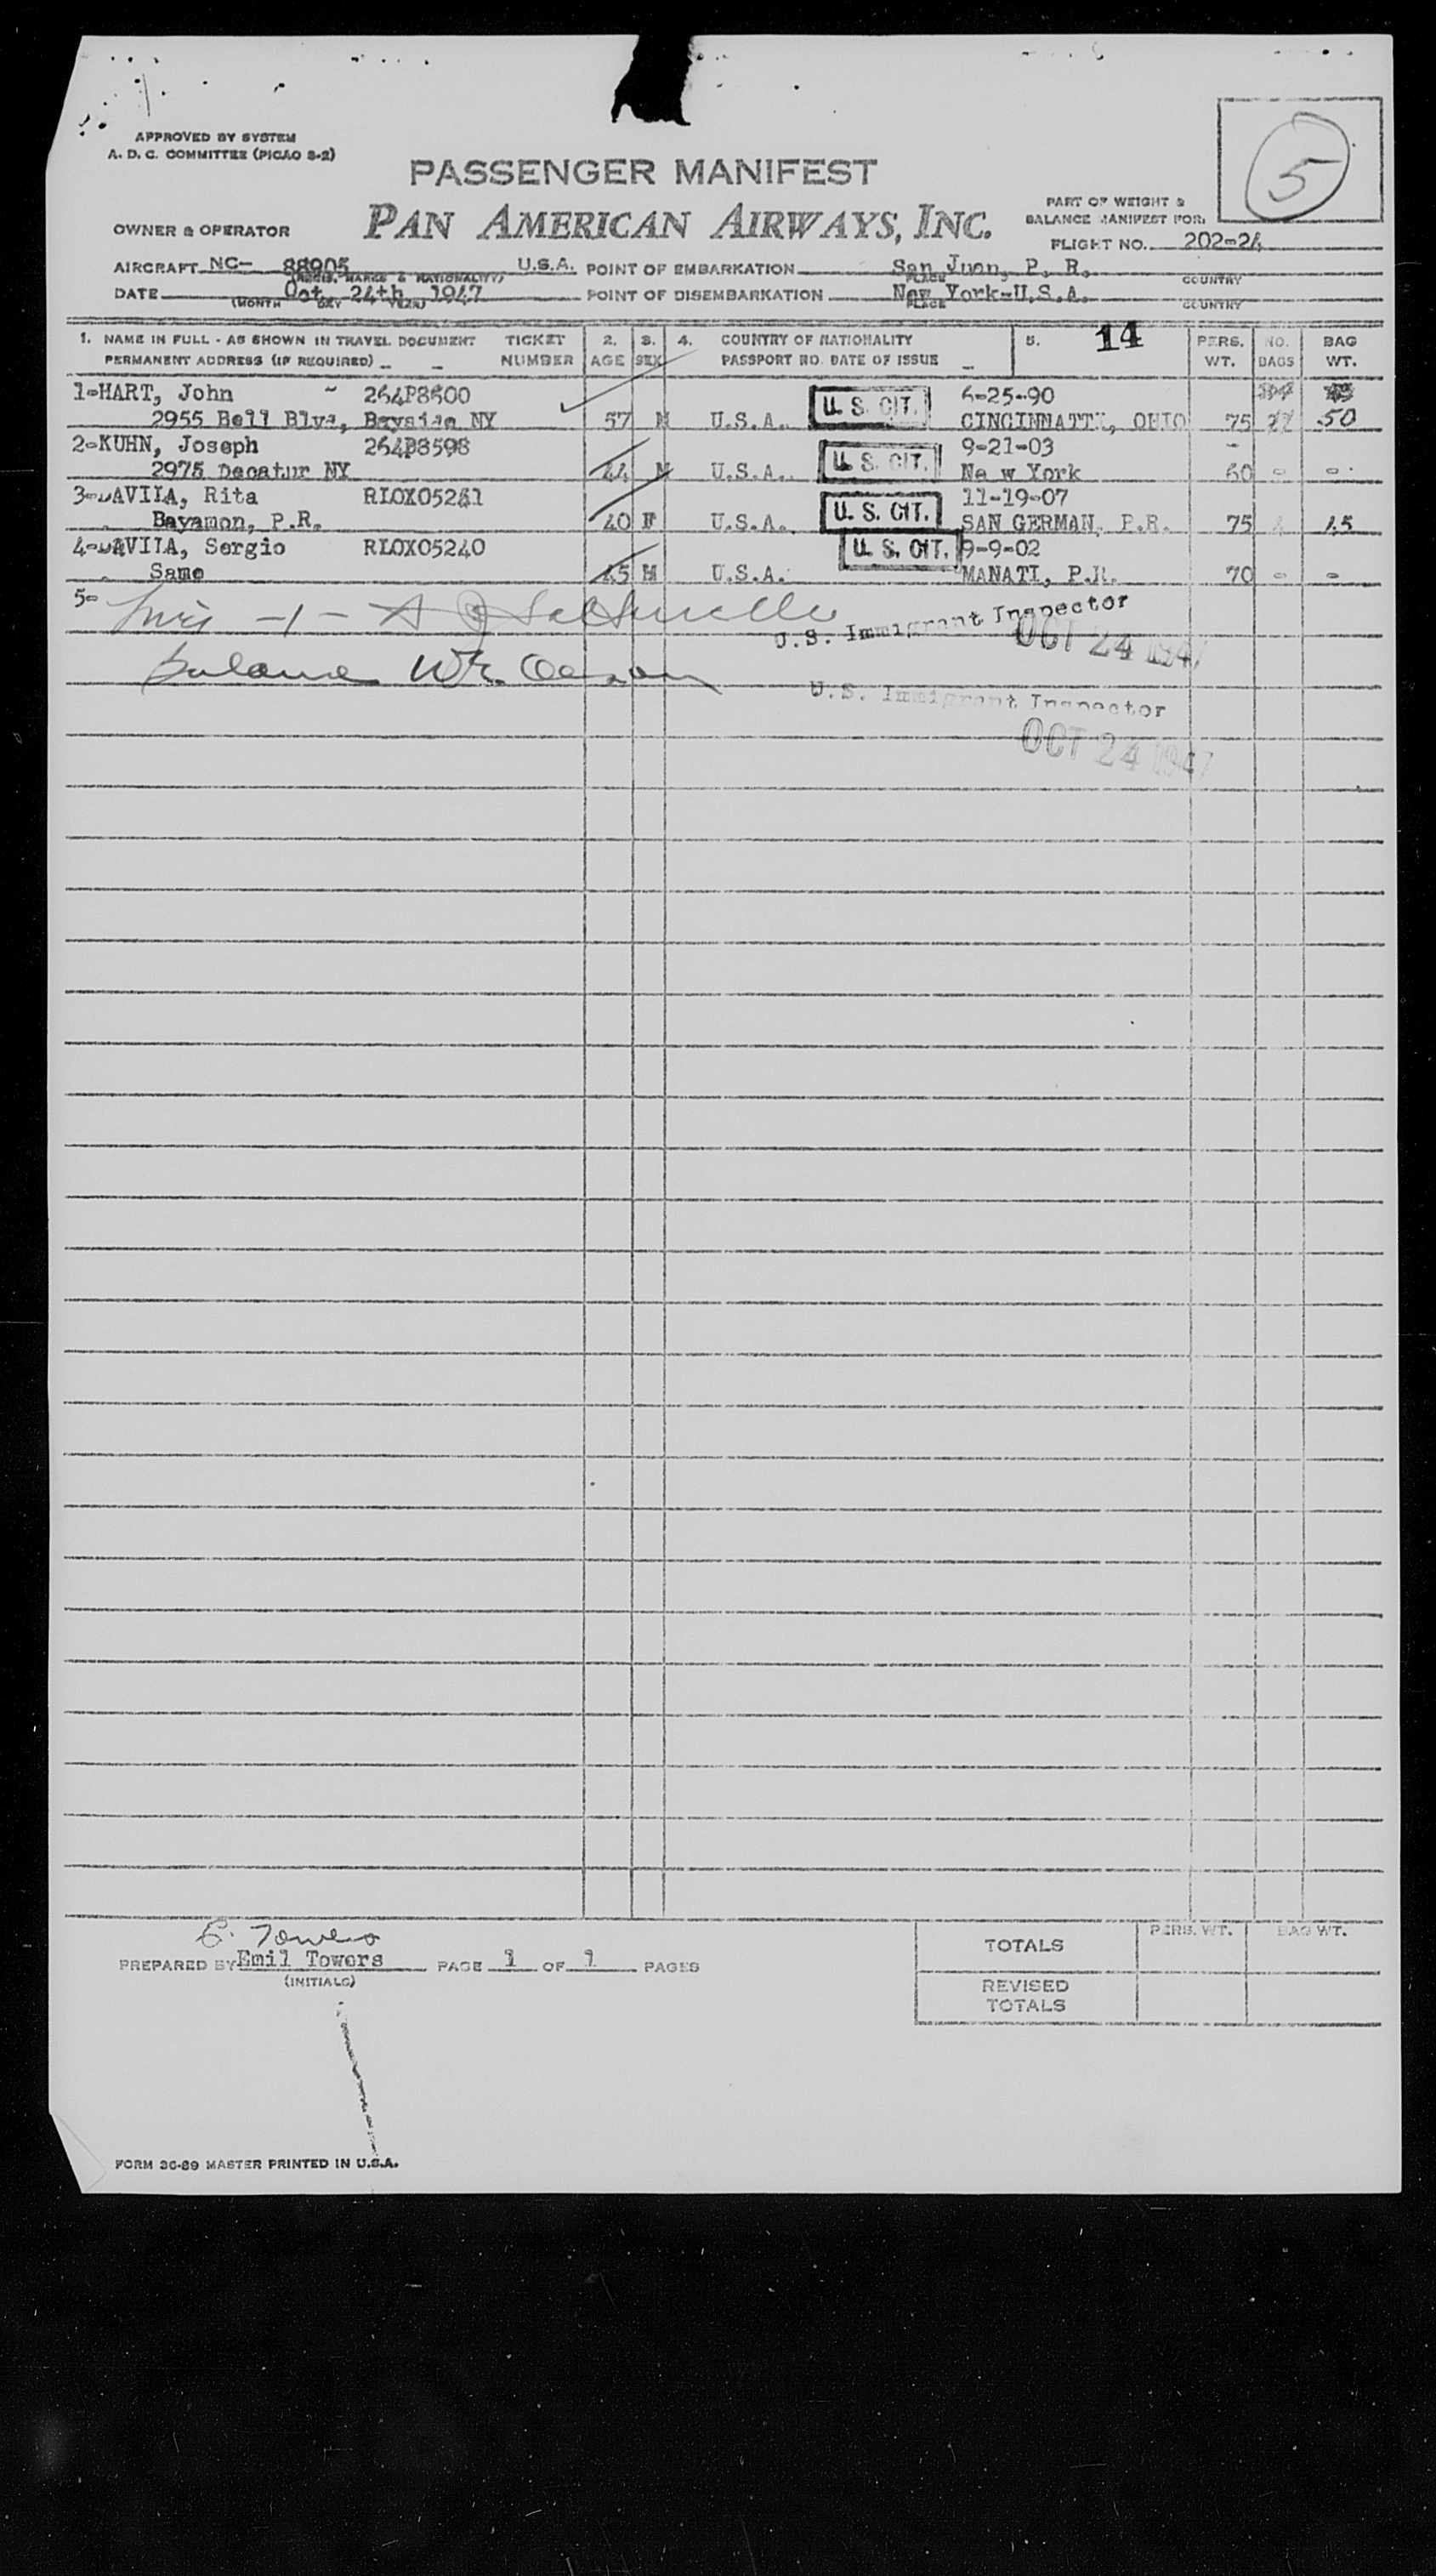 APPROVED BY SYSTEM
A. D. C. COMMITTEE (PICAO S-2)
5
PASSENGER MANIFEST
PAN AMERICAN AIRWAYS, INC.
PART OF WEIGHT &
BALANCE MANIFEST FOR:
FLIGHT NO. 202-24
OWNER & OPERATOR
AIRCRAFT NC- 88905 U.S.A. POINT OF EMBARKATION San Juan, P. R.
(REGIS. MARKS & NATIONALITY) PLACE COUNTRY
DATE Oct 24th 1947 POINT OF DISEMBARKATION New York-U.S.A.
(MONTH DAY YEAR) PLACE COUNTRY
1. NAME IN FULL - AS SHOWN IN TRAVEL DOCUMENT TICKET 2. 3. 4. COUNTRY OF NATIONALITY 5. 14 PERS. NO. BAG
PERMANENT ADDRESS (IF REQUIRED) NUMBER AGE SEX PASSPORT NO. DATE OF ISSUE WT. BAGS WT.
1-HART, John - 264P8600 6-25-90
2955 Bell Blvd, Bayside NY 57 M U.S.A. U. S. CIT. CINCINNATTI, OHIO 75 50
2-KUHN, Joseph 264P8598 9-21-03 -
2975 Decatur NY 44 M U.S.A. U. S. CIT. Ne w York 60 - -
3-DAVILA, Rita RLOX05241 11-19-07
Bayamon, P.R. 40 F U.S.A. U. S. CIT. SAN GERMAN, P.R. 75 4 45
4-DAVILA, Sergio RLOX05240 U. S. CIT. 9-9-02
Same 45 M U.S.A. MANATI, P.R. 70 - -
5-
U.S. Immigrant Inspector
OCT 24 1947
Balance
U.S. Immigrant Inspector
OCT 24 1947
E. Towers
PREPARED BY Emil Towers PAGE 1 OF 1 PAGES
(INITIALS)
TOTALS PERS. WT. BAG WT.
REVISED
TOTALS
FORM 36-89 MASTER PRINTED IN U.S.A.